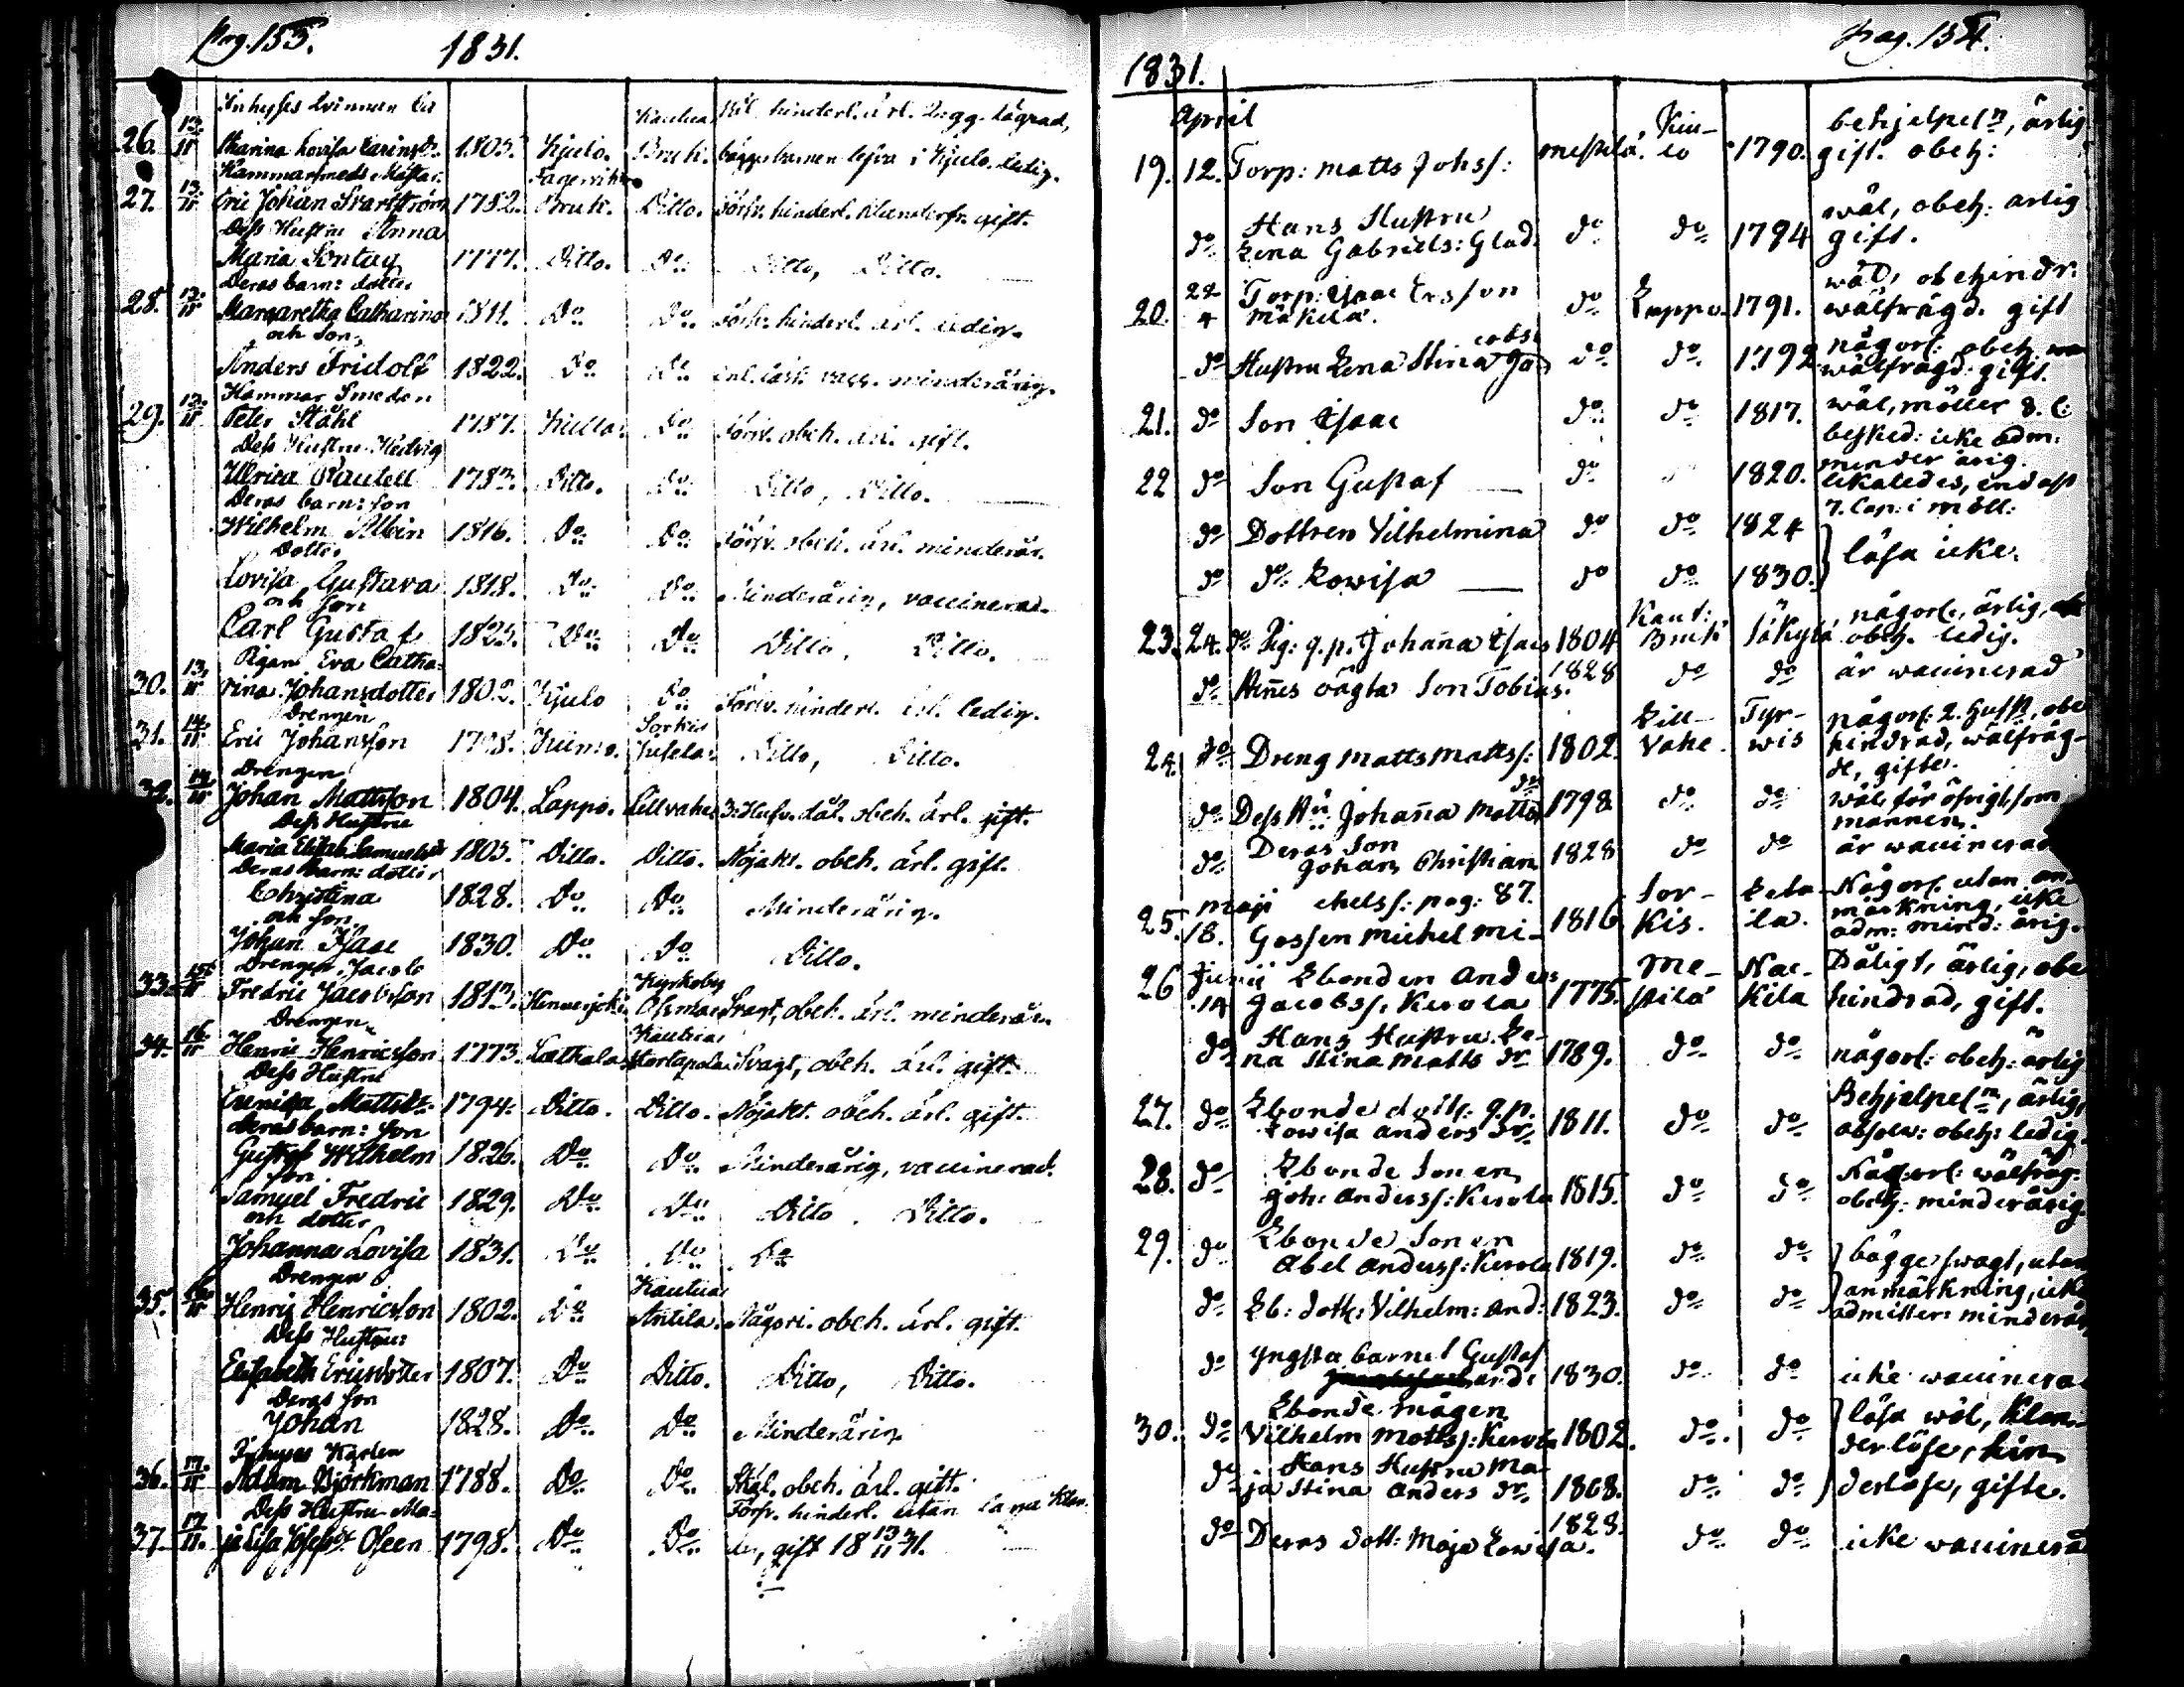 Pag. 153.
1831.
Inhyses Qvinnan Ca
26. 13/11 tharina Lovisa Carinsdr. 1803. Kjulo. Kautua Bruk. hinderl. ärl. 2 ägg. lägrad, bägge barnen lefva i Kjulo. ledig.
Hammarsmeds Mästar.
27. 13/11 Eric Johan Svartström 1782. Fagerviks Bruk. Ditto. Förfv. hinderl. klanderfr. gift.
Dess Hustru Anna
Maria Sontag 1777. Ditto. Do Ditto, Ditto.
Deras barn: dotter
28. 13/11 Margaretha Catharina 1811. Do Do Förfv. hinderl. ärl. ledig.
och Son,
Anders Fridolf 1822. Do Do vacc. minderårig.
Hammar Smeden
29. 13/11 Peter Ståhl 1787. Do Förfv. obeh. ärl. gift.
Dess Hustru Hedvig
Ulrica Rautell 1783. Ditto. Do Ditto, Ditto.
Deras barn: son
Wilhelm Albin 1816. Do Do Förfv. obeh. ärl. minderår.
Dotter
Lovisa Gustava 1818. Do Do Minderårig, vaccinerad.
och son
Carl Gustaf 1825. Do Do Ditto, Ditto.
Pigan Eva Catha-
30. 13/11 rina Johansdotter 1802. Kjulo Do Förfv. hinderl. ärl. ledig.
Drengen
31. 14/11 Eric Johansson 1798. Kiimo. Sorkis Ditto, Ditto.
Drengen
32. 14/11 Johan Mattsson 1804. Lappo. Lillvahe 3. Hufv. dål. obeh. ärl. gift.
Dess Hustru
Maria Elisab. Samuelsdr 1805. Ditto. Ditto. Nöjakt. obeh. ärl. gift.
Deras Barn: dotter
Christina 1828. Do Do Minderårig.
och son,
Johan Isaac 1830. Do Do Ditto.
Drengen Jacob
33. 15/11 Fredric Jacobsson 1813. Kyrkoby Svagt, obeh. ärl. minderår.
Drengen
34. 16/11 Henric Henricsson 1773. Lathala. Kautua Svagt, obeh. ärl. gift.
Dess Hustru
Mattsdr. 1794. Ditto. Ditto. Nöjakt. obeh. ärl. gift.
deras barn: son
Gustaf Wilhelm 1826. Do Do Minderårig, vaccinerad.
son.
Samuel Fredric 1829. Do Do Ditto. Ditto.
och dotter
Johanna Lovisa 1831. Do Do Do
Drengen
35. 16/11 Henric Henricsson 1802. Do Kautua Antila. Någorl. obeh. ärl. gift.
Dess Hustru
Elisabeth Ericsdotter 1807. Do Ditto. Ditto, Ditto.
Deras son
Johan 1828. Do Do Minderårig.
Inhyses Karlen
36. 17/11 Adam Björkman 1788. Do Do Skäl. obeh. ärl. gift.
Dess Hustru Ma-
37. 17/11 ja Lisa Josefsdr Oseen 1798. Do Do Förfv. hinderl. utan laga klan-
der, gift 18 13/11 31.
pag. 154.
1831.
April
19. 12. Torp: Matts Johss: Mestilä. Kiu-lo 1790. behjelpeln, ärlig gift. obeh:
do Hans Hustru Lena Gabriels: Glad. do do 1794 wäl, obeh: ärlig gift.
20. 22/4 Torp: Isaac Ersson Mäkilä. do Lappo. 1791. wäl, obehindr: wälfrägd. gift
do Hustru Lena Stina Jacobs: do do 1792 någorl: obeh. wälfrägd: gift.
21. do Son Isaac do do 1817. wäl, möller 8. C: besked: icke adm: minder årig.
22 do Son Gustaf do 1820. likaledes, endast 7. Cap: i möll:
do Dottren Vilhelmina do do 1824
do do Lowisa do do 1830. } läsa icke.
23. 24. do Pig: q.p. Johanna Isacs 1804 Kaut: Bruk Säkylä någorl., ärlig, obeh. ledig.
do Hennes oägta Son Tobias. 1828 do do är waccinerad
24. do Dreng Matts Mattss: 1802. Lill-Vahe. Tyr-wis någorl: 2. Hufst, obe
hindrad, wälfräg-
de, gifte.
do Dess Hu: Johanna Matts dr 1798 do do wäl för öfrigt som
mannen.
do Deras Son Johan Christian 1828 do do är waccinerad
Maji chelss: pag: 87.
25. 18. Gossen Michel Mi- 1816 Sor-kis. Keta-ila. Någorl. utan an-
märkning, icke
adm: mind: årig.
26 Junii 14 Ebonden Anders Jacobss. Kerola 1775. Me-stilä Nac-kila Dåligt, ärlig, obe
hindrad, gift.
do Hans Hustru Le-
na Stina Matts dr 1789. do do någorl: obeh: ärlig
27. do Ebonde dott: q.p. Lowisa Anders dr 1811. do do Behjelpeln, ärlig,
absolv: obeh: ledig.
28. do Ebonde Sonen Joh: Anderss: Kerola 1815. do do Någorl: wälfräg:
obeh: minderårig.
29. do Ebonde Sonen Abel Anderss: Kerola 1819. do do } bägge swagt, utan
do Eb: dott: Vilhelm: And: 1823. do do } anmärkning, icke
admitter: minderår
do Yngsta barnet Gustaf And: 1830. do do icke waccinerad
30. do Ebonde Mågen Vilhelm Mattss: Kerola 1802. do do } läsa wäl, klan-
derlöse, hin
do Hans Hustru Ma-
ja Stina Anders dr. 1808. do do } derlöse, gifte.
do Deras dott: Maja Lowisa. 1828. do do icke waccinerad